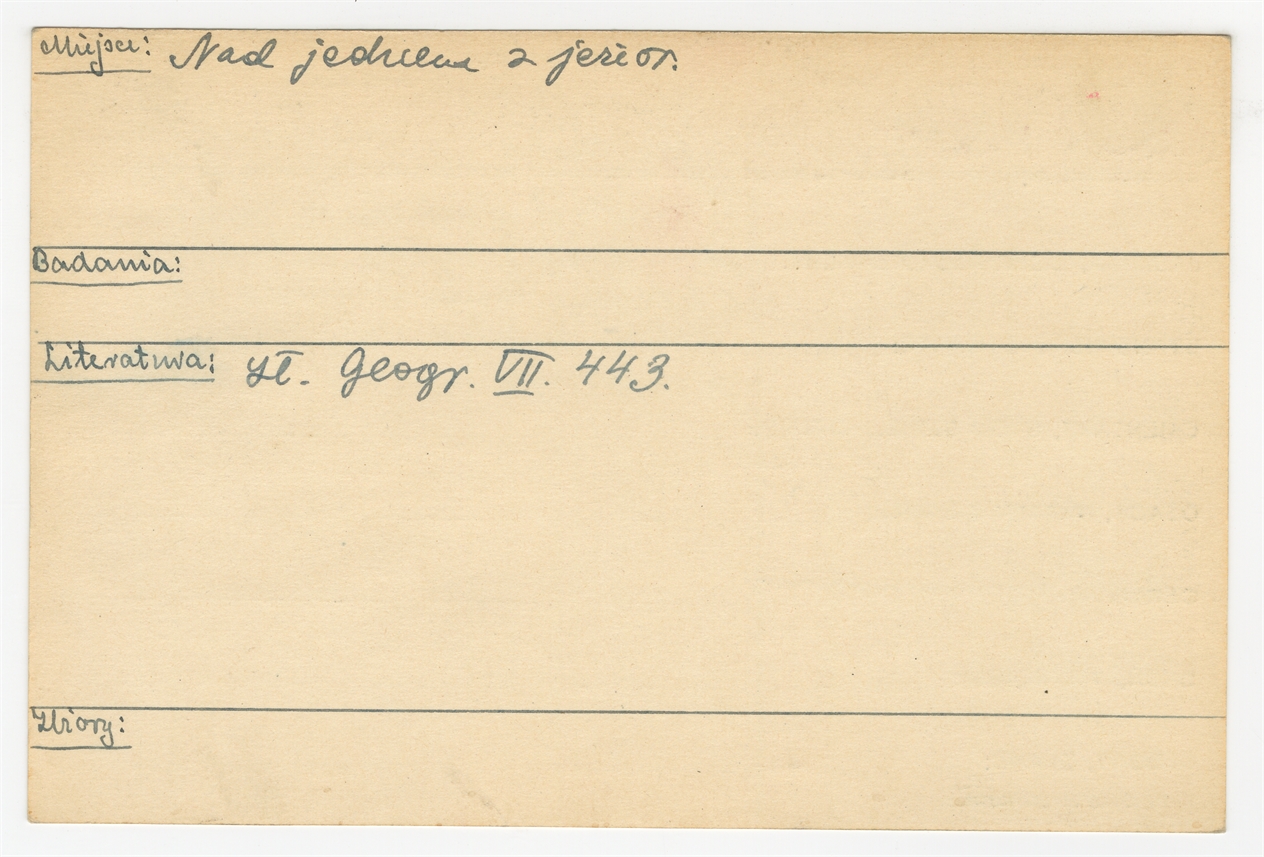 Miejsce: Nad jednem z jezior.
Badania:
Literatura: Sł. Geogr. VII. 443.
Zbiory: